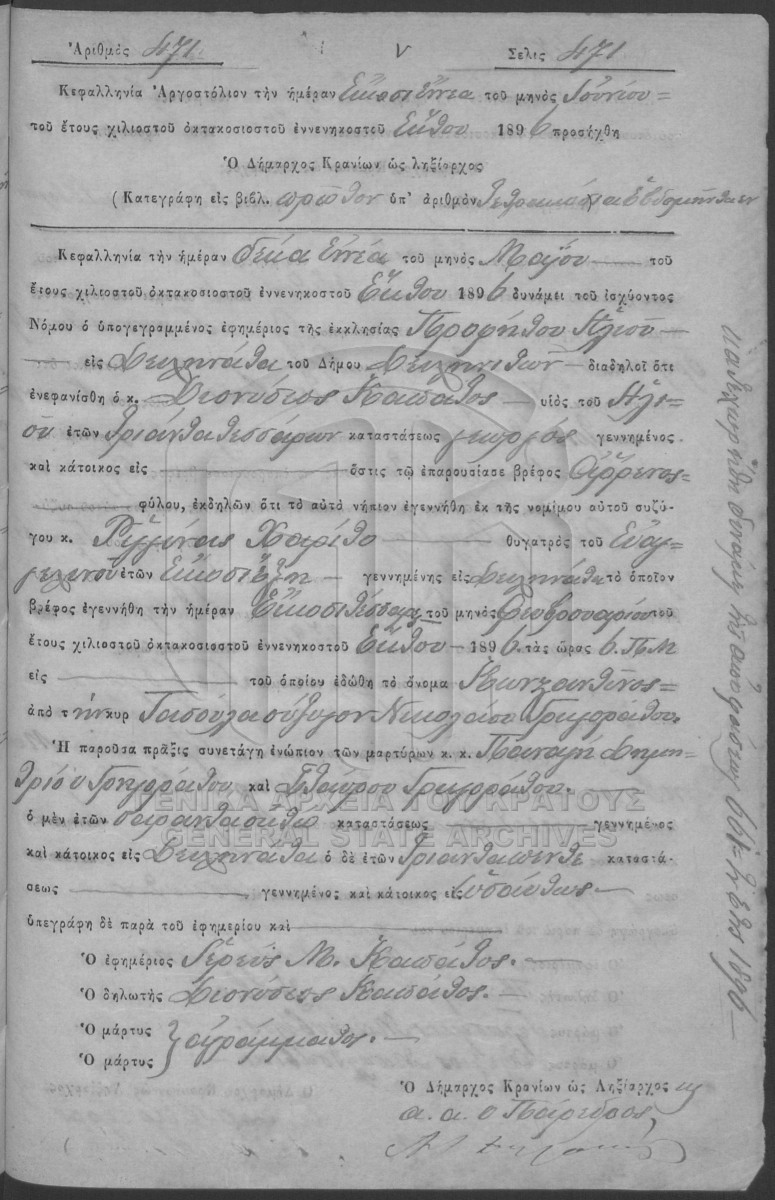 Ἀριθμὸς 471. Σελὶς 471
Κεφαλληνία Ἀργοστόλιον τὴν ἡμέραν Εἴκοσι Ἐννέα τοῦ μηνὸς Ἰουνίου =
τοῦ ἔτους χιλιοστοῦ ὀκτακοσιοστοῦ ἐννενηκοστοῦ Ἕκτου 1896 προσήχθη
Ὁ Δήμαρχος Κρανίων ὡς ληξίαρχος
(Κατεγράφη εἰς βιβλ. πρῶτον ὑπ' ἀριθμὸν τετρακόσια ἑβδομῆντα ἕν
Κεφαλληνία τὴν ἡμέραν δέκα ἐννέα τοῦ μηνὸς Μαΐου — τοῦ
ἔτους χιλιοστοῦ ὀκτακοσιοστοῦ ἐννενηκοστοῦ Ἕκτου 1896 δυνάμει τοῦ ἰσχύοντος
Νόμου ὁ ὑπογεγραμμένος ἐφημέριος τῆς ἐκκλησίας Προφήτου Ἠλιοῦ —
— εἰς Δειλινάτα τοῦ Δήμου — διαδηλοῖ ὅτι
ἐνεφανίσθη ὁ κ. Διονύσιος Καπάτος — υἱὸς τοῦ Ἠλι-
οῦ ἐτῶν τριάντα τεσσάρων καταστάσεως γεωργὸς γεννημένος
καὶ κάτοικος εἰς — ὅστις τῷ ἐπαρουσίασε βρέφος ἄῤῥενος =
— φύλου, ἐκδηλῶν ὅτι τὸ αὐτὸ νήπιον ἐγεννήθη ἐκ τῆς νομίμου αὐτοῦ συζύ-
γου κ. Ρεγγίνας — θυγατρὸς τοῦ Εὐαγ-
γελινοῦ ἐτῶν Εἴκοσι Ἕξη — γεννημένης εἰς Δειλινάτα τὸ ὁποῖον
βρέφος ἐγεννήθη τὴν ἡμέραν Εἴκοσι τέσσαρες τοῦ μηνὸς Φευβρουαρίου τοῦ
ἔτους χιλιοστοῦ ὀκτακοσιοστοῦ ἐννενηκοστοῦ Ἕκτου — 1896 τὰς ὥρας 6. Π.Μ
εἰς — τοῦ ὁποίου ἐδώθη τὸ ὄνομα Κωνσταντῖνος =
ἀπὸ τὴν κυρ Τασούλα σύζυγον Νικολάου Γρηγοράτου.
Ἡ παροῦσα πρᾶξις συνετάγη ἐνώπιον τῶν μαρτύρων κ. κ. Παναγῆ Δημη-
τρίου Γρηγοράτου καὶ Σταύρου Γρηγοράτου. —
ΓΕΝΙΚΑ ΑΡΧΕΙΑ ΤΟΥ ΚΡΑΤΟΥΣ
GENERAL STATE ARCHIVES
ὁ μὲν ἐτῶν σαράντα ὀκτὼ καταστάσεως — γεννημένος
καὶ κάτοικος εἰς Δειλινάτα ὁ δὲ ἐτῶν Τριάντα πέντε καταστά-
σεως — γεννημένος καὶ κάτοικος εἰς ὡσαύτως —
ὑπεγράφη δὲ παρὰ τοῦ ἐφημερίου καὶ —
Ὁ ἐφημέριος Ἱερεὺς Μ. Καπάτος. —
Ὁ δηλωτὴς Διονύσιος Καπάτος. —
Ὁ μάρτυς } ἀγράμματος. —
Ὁ μάρτυς
Ὁ Δήμαρχος Κρανίων ὡς Ληξίαρχος
α. α. ὁ Πάρεδρος
Κατεχωρήθη δυνάμει τῆς ἀποφάσεως 1896 —